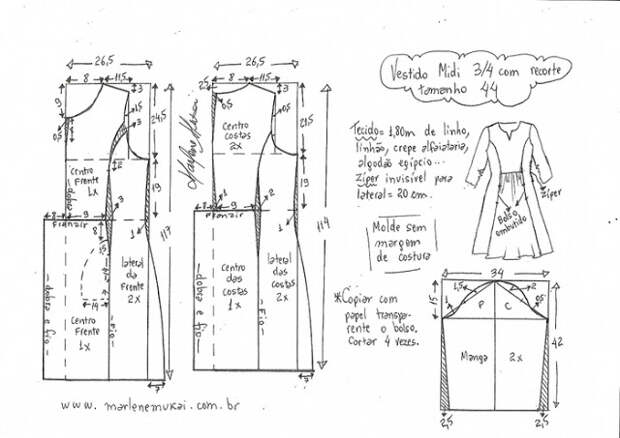 Vestido Midi 3/4 com recorte
tamanho 44
Tecido = 1,80m de linho,
linhão, crepe alfaiataria,
algodão egípcio...
Zíper invisível para
lateral = 20 cm.
Molde sem
margem
de costura
*Copiar com
papel transpa-
rente o bolso.
Cortar 4 vezes.
Bolso
embutido
Zíper
26,5
8
11,5
3
9
1,5
3
24,5
0,5
2
Centro
Frente
1x
-dobra-
19
8
9
3
Franzir
8
1
117
14
lateral
da
Frente
2x
-dobra e fio-
Centro
Frente
1x
-Fio-
7
26,5
2,5
8
11,5
3
0,5
0,5
Centro
costas
2x
21,5
19
1
2
8
9
Franzir
1
114
Centro
das
costas
1x
lateral
das
costas
2x
-dobra e fio-
-Fio-
7
34
15
1,5
2
1
P
C
0,5
42
Manga
2x
2,5
2,5
www.marlenemukai.com.br